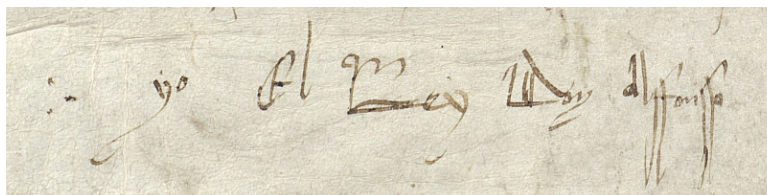 yo El Rey Don Alffonso